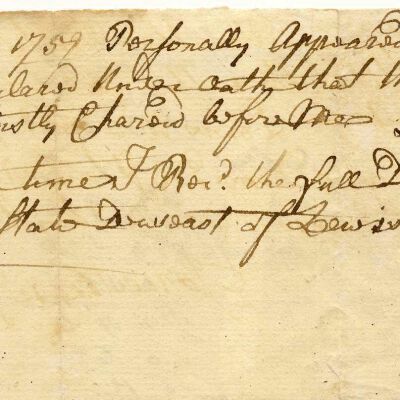 1759 Personally Appeared
lared Under oath that th
ustly Chared before Me
time I Rec.d the full D
State Deceast of Lewis